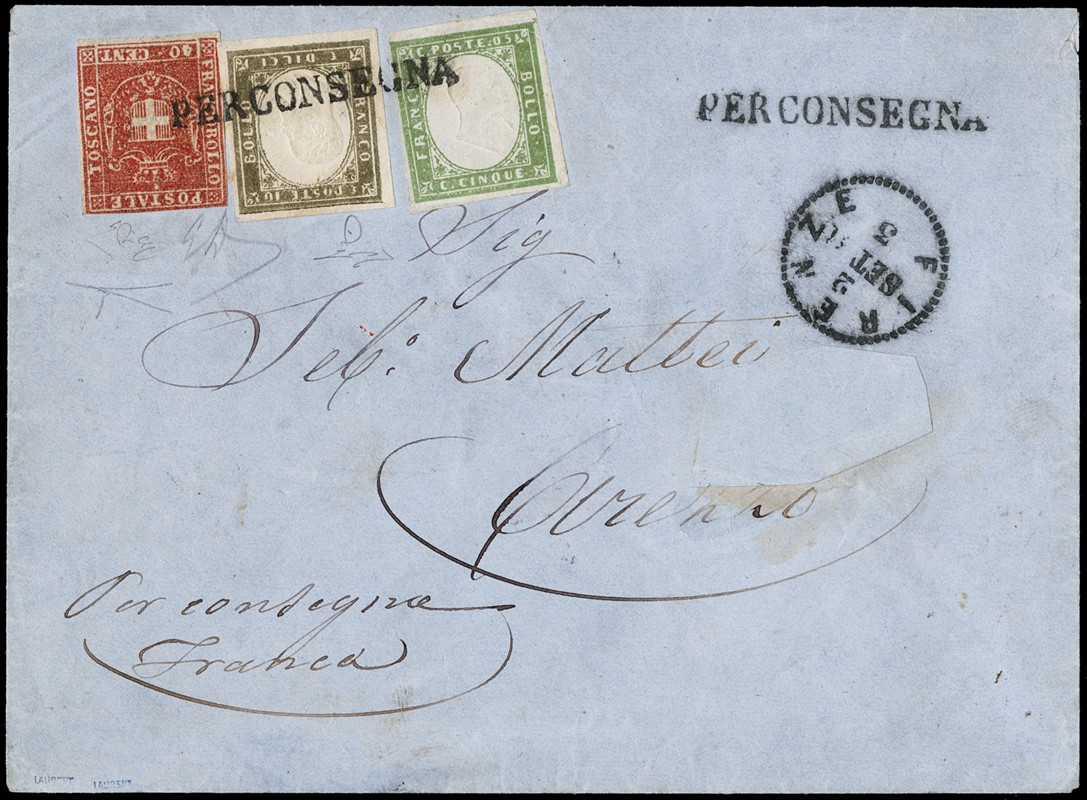 FRANCOBOLLO
POSTALE
TOSCANO
40 CENT
C. DIECI
FRANCO
C. POSTE 10
BOLLO
C. POSTE. 05
BOLLO
C. CINQUE
FRANCO
PER CONSEGNA
PER CONSEGNA
FIRENZE
3
SET
Sig
Seb: Mattei
Arezzo
Per consegna
Franca
LAURENT
LAURENT